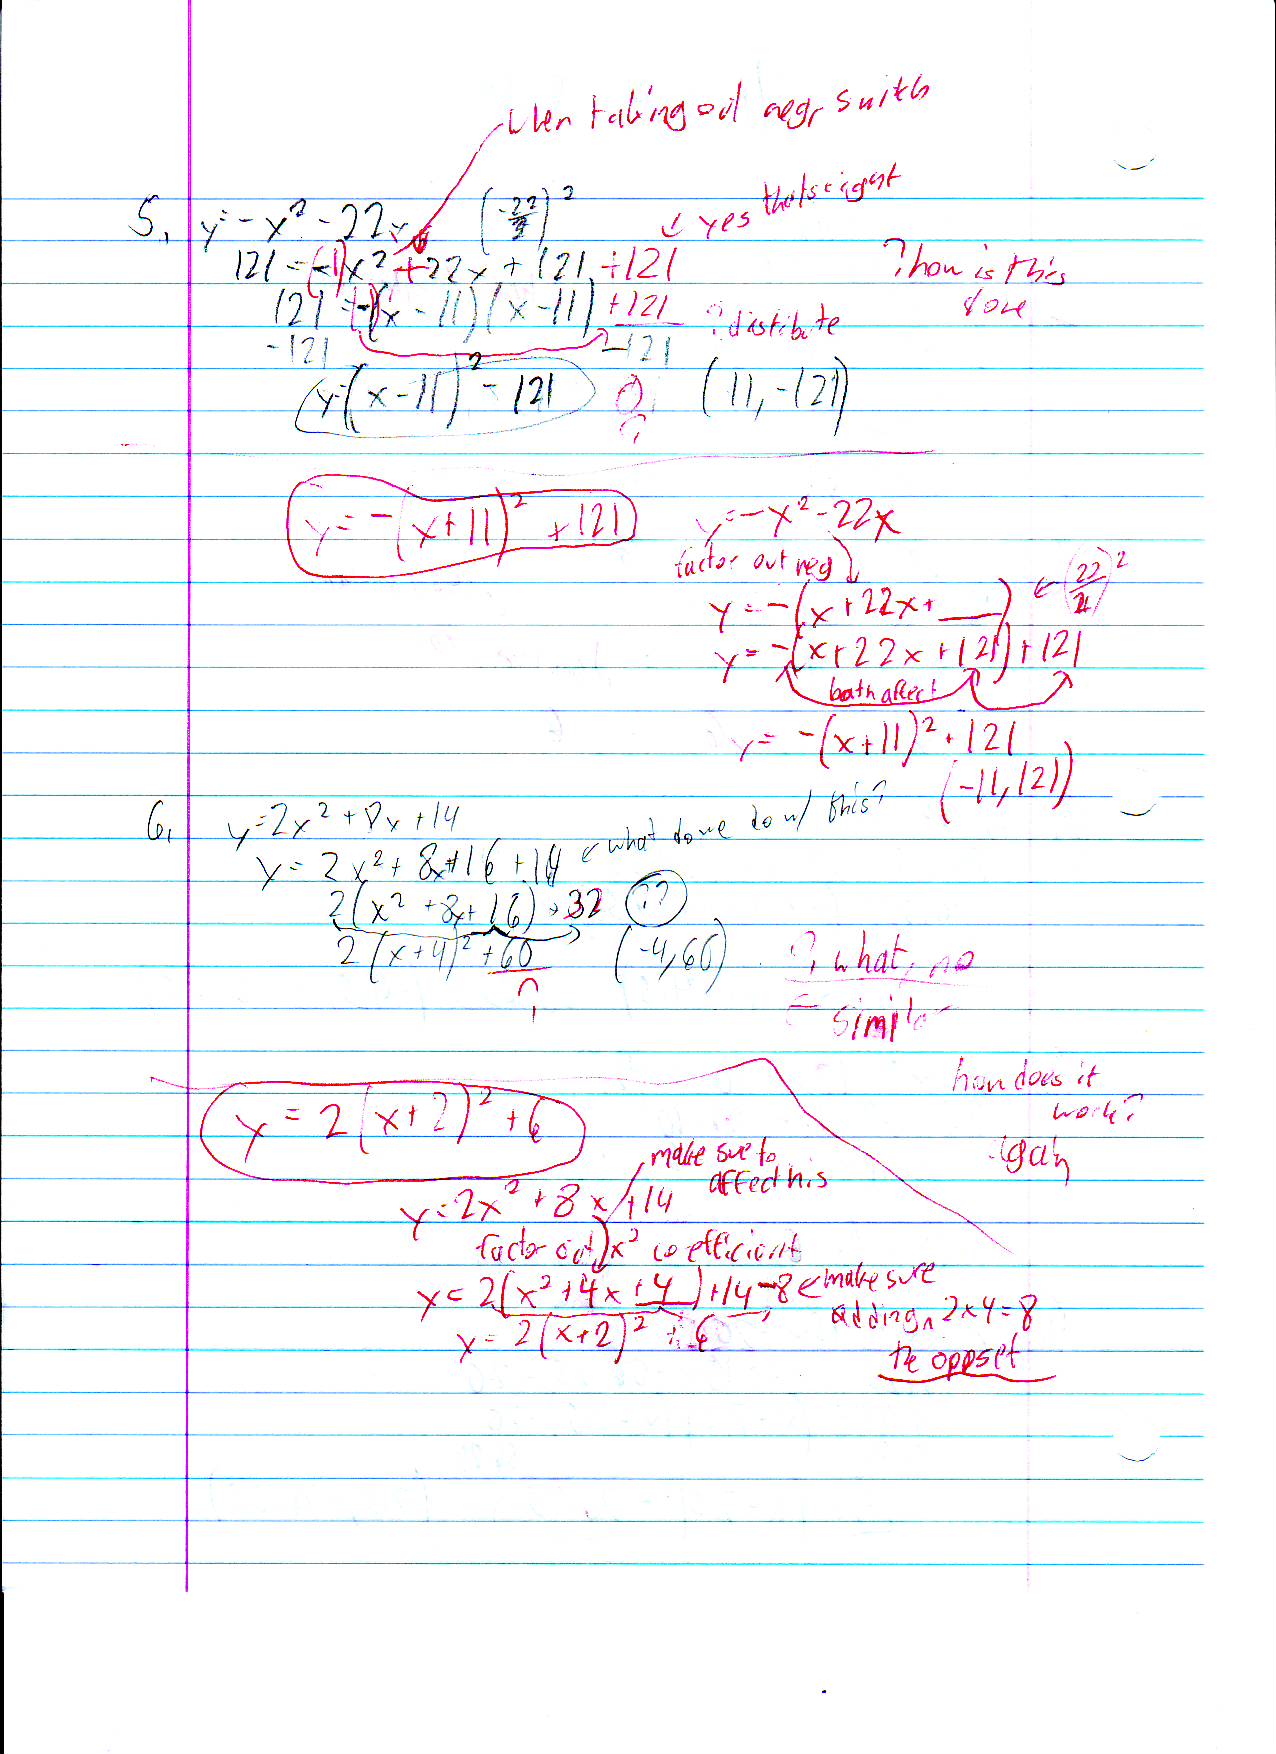 when taking out neg, switch
5. y = -x² - 22x (-22/2)²
↙ yes thats right
121 = -(1)x² + 22x + 121 + 121
? how is this done
121 = -(x - 11)(x - 11) + 121 ? distibute
-121 -121
y = (x - 11)² - 121 0 (11, -121)
?
y = -(x + 11)² + 121
y = -x² - 22x
factor out neg
y = -(x + 22x + ___) ← (22/2)²
y = -(x + 22x + 121) + 121
both affect
y = -(x + 11)² + 121
(-11, 121)
6. y = 2x² + 8x + 14
y = 2x² + 8x + 16 + 14 ← what do we do w/ this?
2(x² + 8x + 16) + 32 ??
2(x + 4)² + 60 (-4, 60)
? what, no
simple
how does it work?
y = 2(x + 2)² + 6
make sure to affect his
y = 2x² + 8x + 14
factor out x² coefficient
y = 2(x² + 4x + 4) + 14 - 8 ← make sure
adding 2 x 4 = 8
y = 2(x + 2)² + 6
the oppset